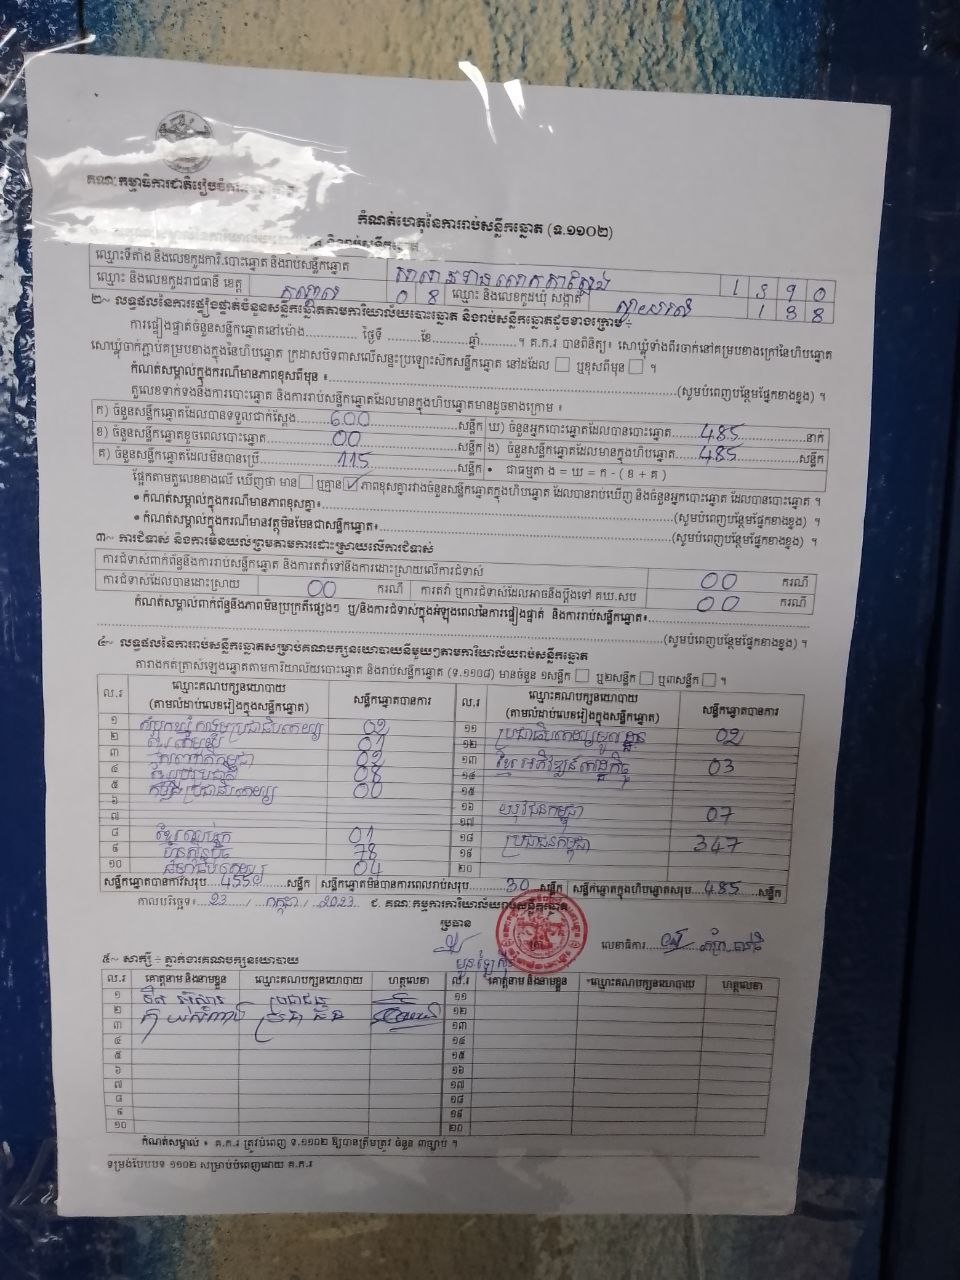 គណៈកម្មាធិការជាតិរៀបចំការ
កំណត់ហេតុនៃការរាប់សន្លឹកឆ្នោត (ទ.១១០២)
ឈ្មោះទីតាំង និងលេខកូដការិ.បោះឆ្នោត និងរាប់សន្លឹកឆ្នោត 1 5 9 0
ឈ្មោះ និងលេខកូដរាជធានី ខេត្ត កណ្តាល 0 8 ឈ្មោះ និងលេខកូដឃុំ សង្កាត់ 1 3 8
២~ លទ្ធផលនៃការផ្ទៀងផ្ទាត់ចំនួនសន្លឹកឆ្នោតតាមការិយាល័យបោះឆ្នោត និងរាប់សន្លឹកឆ្នោតដូចខាងក្រោម ៖
ការផ្ទៀងផ្ទាត់ចំនួនសន្លឹកឆ្នោតនៅម៉ោង............ ថ្ងៃទី ........ខែ............ឆ្នាំ.........។ គ.ក.រ បានពិនិត្យ៖ សោឃ្លុំទាំងពីរចាក់នៅគម្របខាងក្រៅនៃហិបឆ្នោត
សោឃ្លុំចាក់ភ្ជាប់គម្របខាងក្នុងនៃហិបឆ្នោត ក្រដាសបិទពាសលើសន្ទះប្រឡោះស៊កសន្លឹកឆ្នោត នៅដដែល ☐ ឬខុសពីមុន ☐ ។
កំណត់សម្គាល់ក្នុងករណីមានភាពខុសពីមុន ៖............(សូមបំពេញបន្ថែមផ្នែកខាងខ្នង) ។
តួលេខទាក់ទងនឹងការបោះឆ្នោត និងការរាប់សន្លឹកឆ្នោតដែលមានក្នុងហិបឆ្នោតមានដូចខាងក្រោម ៖
ក) ចំនួនសន្លឹកឆ្នោតដែលបានទទួលជាក់ស្តែង......600......សន្លឹក ឃ) ចំនួនអ្នកបោះឆ្នោតដែលបានបោះឆ្នោត......485......នាក់
ខ) ចំនួនសន្លឹកឆ្នោតខូចពេលបោះឆ្នោត......00......សន្លឹក ង) ចំនួនសន្លឹកឆ្នោតដែលមានក្នុងហិបឆ្នោត......485......សន្លឹក
គ) ចំនួនសន្លឹកឆ្នោតដែលមិនបានប្រើ......115......សន្លឹក • ជាធម្មតា ង = ឃ = ក - ( ខ + គ )
ផ្អែកតាមតួលេខខាងលើ ឃើញថា មាន ☐ ឬគ្មាន ☑ ភាពខុសគ្នារវាងចំនួនសន្លឹកឆ្នោតក្នុងហិបឆ្នោត ដែលបានរាប់ឃើញ និងចំនួនអ្នកបោះឆ្នោត ដែលបានបោះឆ្នោត ។
• កំណត់សម្គាល់ក្នុងករណីមានភាពខុសគ្នា៖............(សូមបំពេញបន្ថែមផ្នែកខាងខ្នង) ។
• កំណត់សម្គាល់ក្នុងករណីមានវត្ថុមិនមែនជាសន្លឹកឆ្នោត៖............(សូមបំពេញបន្ថែមផ្នែកខាងខ្នង) ។
៣~ ការជំទាស់ និងការមិនយល់ព្រមតាមការដោះស្រាយលើការជំទាស់
ការជំទាស់ពាក់ព័ន្ធនឹងការរាប់សន្លឹកឆ្នោត និងការតវ៉ាទៅនឹងការដោះស្រាយលើការជំទាស់ 00 ករណី
ការជំទាស់ដែលបានដោះស្រាយ 00 ករណី ការតវ៉ា ឬការជំទាស់ដែលអាចនឹងប្តឹងទៅ គឃ.សប 00 ករណី
កំណត់សម្គាល់ពាក់ព័ន្ធនឹងភាពមិនប្រក្រតីផ្សេងៗ ឬ/និងការជំទាស់ក្នុងអំឡុងពេលនៃការផ្ទៀងផ្ទាត់ និងការរាប់សន្លឹកឆ្នោត៖............
............(សូមបំពេញបន្ថែមផ្នែកខាងខ្នង) ។
៤~ លទ្ធផលនៃការរាប់សន្លឹកឆ្នោតសម្រាប់គណបក្សនយោបាយនីមួយៗតាមការិយាល័យរាប់សន្លឹកឆ្នោត
តារាងកត់ត្រាសំឡេងឆ្នោតតាមការិយាល័យបោះឆ្នោត និងរាប់សន្លឹកឆ្នោត (ទ.១១០៨) មានចំនួន ១សន្លឹក ☐ ឬ២សន្លឹក ☐ ឬ៣សន្លឹក ☐ ។
ល.រ ឈ្មោះគណបក្សនយោបាយ (តាមលំដាប់លេខរៀងក្នុងសន្លឹកឆ្នោត) សន្លឹកឆ្នោតបានការ ល.រ ឈ្មោះគណបក្សនយោបាយ (តាមលំដាប់លេខរៀងក្នុងសន្លឹកឆ្នោត) សន្លឹកឆ្នោតបានការ
១ 02 ១១ 02
២ 01 ១២
៣ 02 ១៣ 03
៤ 08 ១៤
៥ 00 ១៥
៦ ១៦ យុវជនកម្ពុជា 07
៧ ១៧
៨ 01 ១៨ ប្រជាជនកម្ពុជា 347
៩ 78 ១៩
១០ 04 ២០
សន្លឹកឆ្នោតបានការសរុប......455......សន្លឹក សន្លឹកឆ្នោតមិនបានការពេលរាប់សរុប......30...សន្លឹក សន្លឹកឆ្នោតក្នុងហិបឆ្នោតសរុប...485...សន្លឹក
កាលបរិច្ឆេទ៖...23.../...កក្កដា.../...2023 ជ. គណៈកម្មការការិយាល័យរាប់សន្លឹកឆ្នោត
ប្រធាន
លេខាធិការ
៥~ សាក្សី ÷ ភ្នាក់ងារគណបក្សនយោបាយ
ល.រ គោត្តនាម និងនាមខ្លួន ឈ្មោះគណបក្សនយោបាយ ហត្ថលេខា ល.រ គោត្តនាម និងនាមខ្លួន ឈ្មោះគណបក្សនយោបាយ ហត្ថលេខា
១ ប្រជាជន ១១
២ ប្រជាជន ១២
៣ ១៣
៤ ១៤
៥ ១៥
៦ ១៦
៧ ១៧
៨ ១៨
៩ ១៩
១០ ២០
កំណត់សម្គាល់ ៖ គ.ក.រ ត្រូវបំពេញ ទ.១១០២ ឱ្យបានត្រឹមត្រូវ ចំនួន ៣ច្បាប់ ។
ទម្រង់បែបបទ ១១០២ សម្រាប់បំពេញដោយ គ.ក.រ